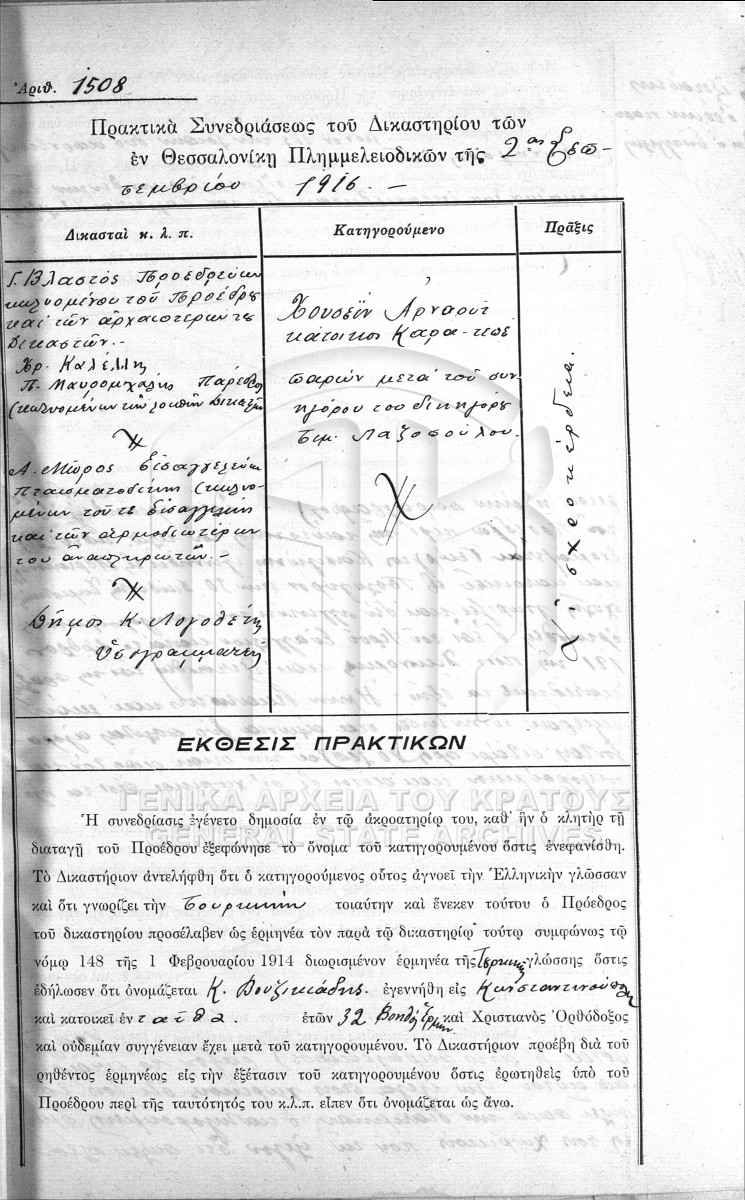 Ἀριθ. 1508
Πρακτικὰ Συνεδριάσεως τοῦ Δικαστηρίου τῶν
ἐν Θεσσαλονίκῃ Πλημμελειοδικῶν τῆς 2ας Σεπ-
τεμβρίου 1916. —
Δικασταὶ κ. λ. π.
Γ. Βλαστὸς Προεδρεύων
κωλυομένου τοῦ Προέδρου
καὶ τῶν ἀρχαιοτέρων του
Δικαστῶν. -
Χρ. Καλέλλης
Π. Μαυρομιχάλης Πάρεδρος
κωλυομένων τῶν λοιπῶν Δικαστῶν
Α. Μῶρος Εἰσαγγελεύων
Πταισματοδίκης κωλυο-
μένων τοῦ τε Εἰσαγγελέως
καὶ τῶν ἁρμοδιωτέρων
του ἀναπληρωτῶν. -
Δῆμος Κ. Λογοθέτης
Ὑπογραμματεύς
Κατηγορούμενο
Ὁ
Χουσεῒν Ἀρναούτ
κάτοικος Καρα-τεπέ
παρὼν μετὰ τοῦ συν
ηγόρου του δικηγόρου
Σιμ. Λαζοπούλου.
Πρᾶξις
Αἰσχροκέρδεια.
ΕΚΘΕΣΙΣ ΠΡΑΚΤΙΚΩΝ
Ἡ συνεδρίασις ἐγένετο δημοσία ἐν τῷ ἀκροατηρίῳ του, καθ' ἣν ὁ κλητὴρ τῇ
διαταγῇ τοῦ Προέδρου ἐξεφώνησε τὸ ὄνομα τοῦ κατηγορουμένου ὅστις ἐνεφανίσθη.
Τὸ Δικαστήριον ἀντελήφθη ὅτι ὁ κατηγορούμενος οὗτος ἀγνοεῖ τὴν Ἑλληνικὴν γλῶσσαν
καὶ ὅτι γνωρίζει τὴν Τουρκικὴν τοιαύτην καὶ ἕνεκεν τούτου ὁ Πρόεδρος
τοῦ δικαστηρίου προσέλαβεν ὡς ἑρμηνέα τὸν παρὰ τῷ δικαστηρίῳ τούτῳ συμφώνως τῷ
νόμῳ 148 τῆς 1 Φεβρουαρίου 1914 διωρισμένον ἑρμηνέα τῆς Τουρκικῆς γλώσσης ὅστις
ἐδήλωσεν ὅτι ὀνομάζεται Κ. Βουζικιάδης. ἐγεννήθη εἰς Κωνσταντινούπολιν
καὶ κατοικεῖ ἐνταῦθα. ἐτῶν 32 Βοηθὸς Ἑρμην. καὶ Χριστιανὸς Ὀρθόδοξος
καὶ οὐδεμίαν συγγένειαν ἔχει μετὰ τοῦ κατηγορουμένου. Τὸ Δικαστήριον προέβη διὰ τοῦ
ρηθέντος ἑρμηνέως εἰς τὴν ἐξέτασιν τοῦ κατηγορουμένου ὅστις ἐρωτηθεὶς ὑπὸ τοῦ
Προέδρου περὶ τῆς ταυτότητός του κ.λ.π. εἶπεν ὅτι ὀνομάζεται ὡς ἄνω.
ΓΕΝΙΚΑ ΑΡΧΕΙΑ ΤΟΥ ΚΡΑΤΟΥΣ
GENERAL STATE ARCHIVES